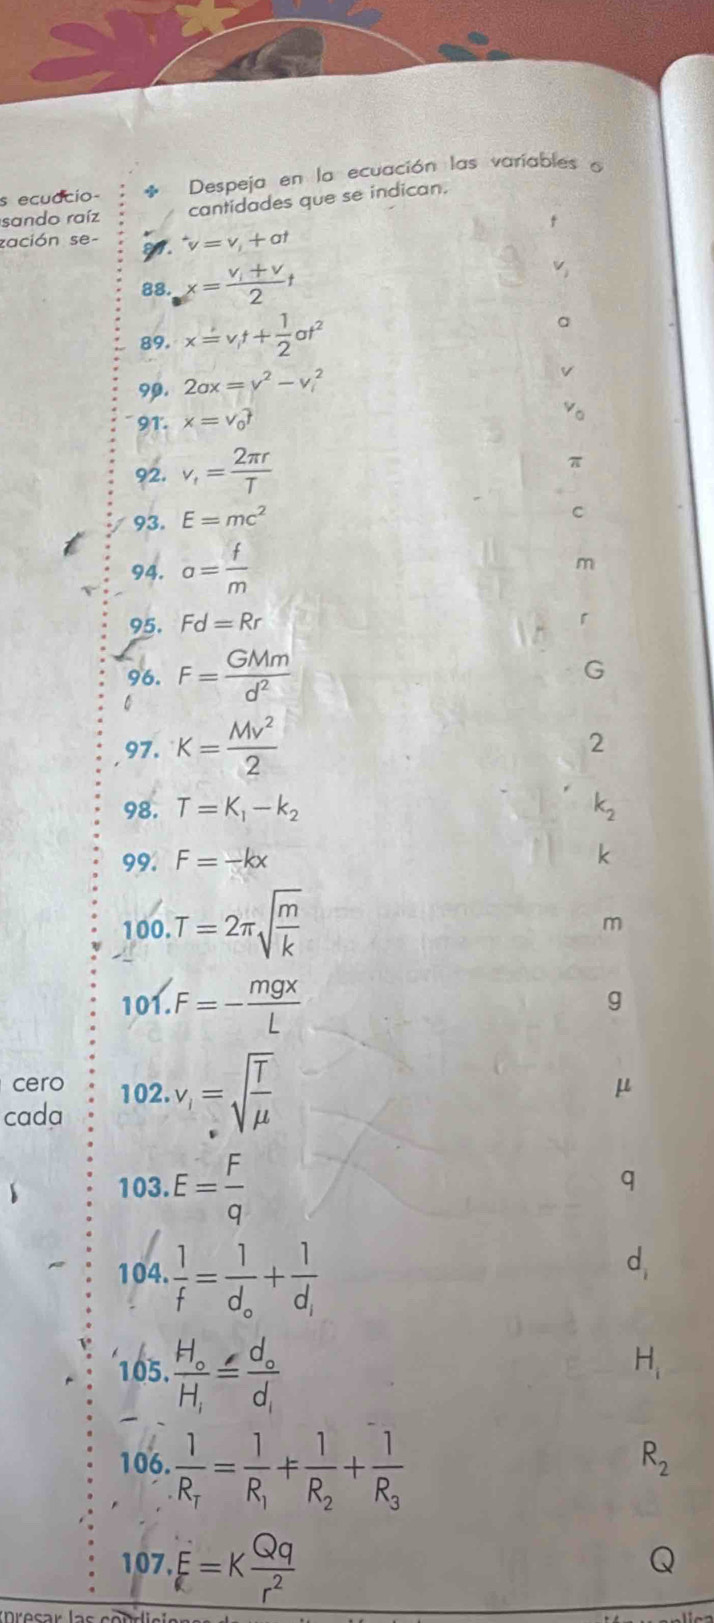 s ecuacio-
sando raíz
zación se-
Despeja en la ecuación las variables o
cantidades que se indican.
87. v = v_i + at t
88. x = \frac{v_i + v}{2} t v_i
89. x = v_i t + \frac{1}{2} at^2 a
90. 2ax = v^2 - v_i^2 v
91. x = v_0 t v_0
92. v_t = \frac{2πr}{T} π
93. E = mc^2 c
94. a = \frac{f}{m} m
95. Fd = Rr r
96. F = \frac{GMm}{d^2} G
97. K = \frac{Mv^2}{2} 2
98. T = K_1 - k_2 k_2
99. F = -kx k
100. T = 2π\sqrt{\frac{m}{k}} m
101. F = -\frac{mgx}{L} g
cero
cada
102. v_i = \sqrt{\frac{T}{μ}} μ
103. E = \frac{F}{q} q
104. \frac{1}{f} = \frac{1}{d_o} + \frac{1}{d_i} d_i
105. \frac{H_o}{H_i} = \frac{d_o}{d_i} H_i
106. \frac{1}{R_T} = \frac{1}{R_1} + \frac{1}{R_2} + \frac{1}{R_3} R_2
107. E = K\frac{Qq}{r^2} Q